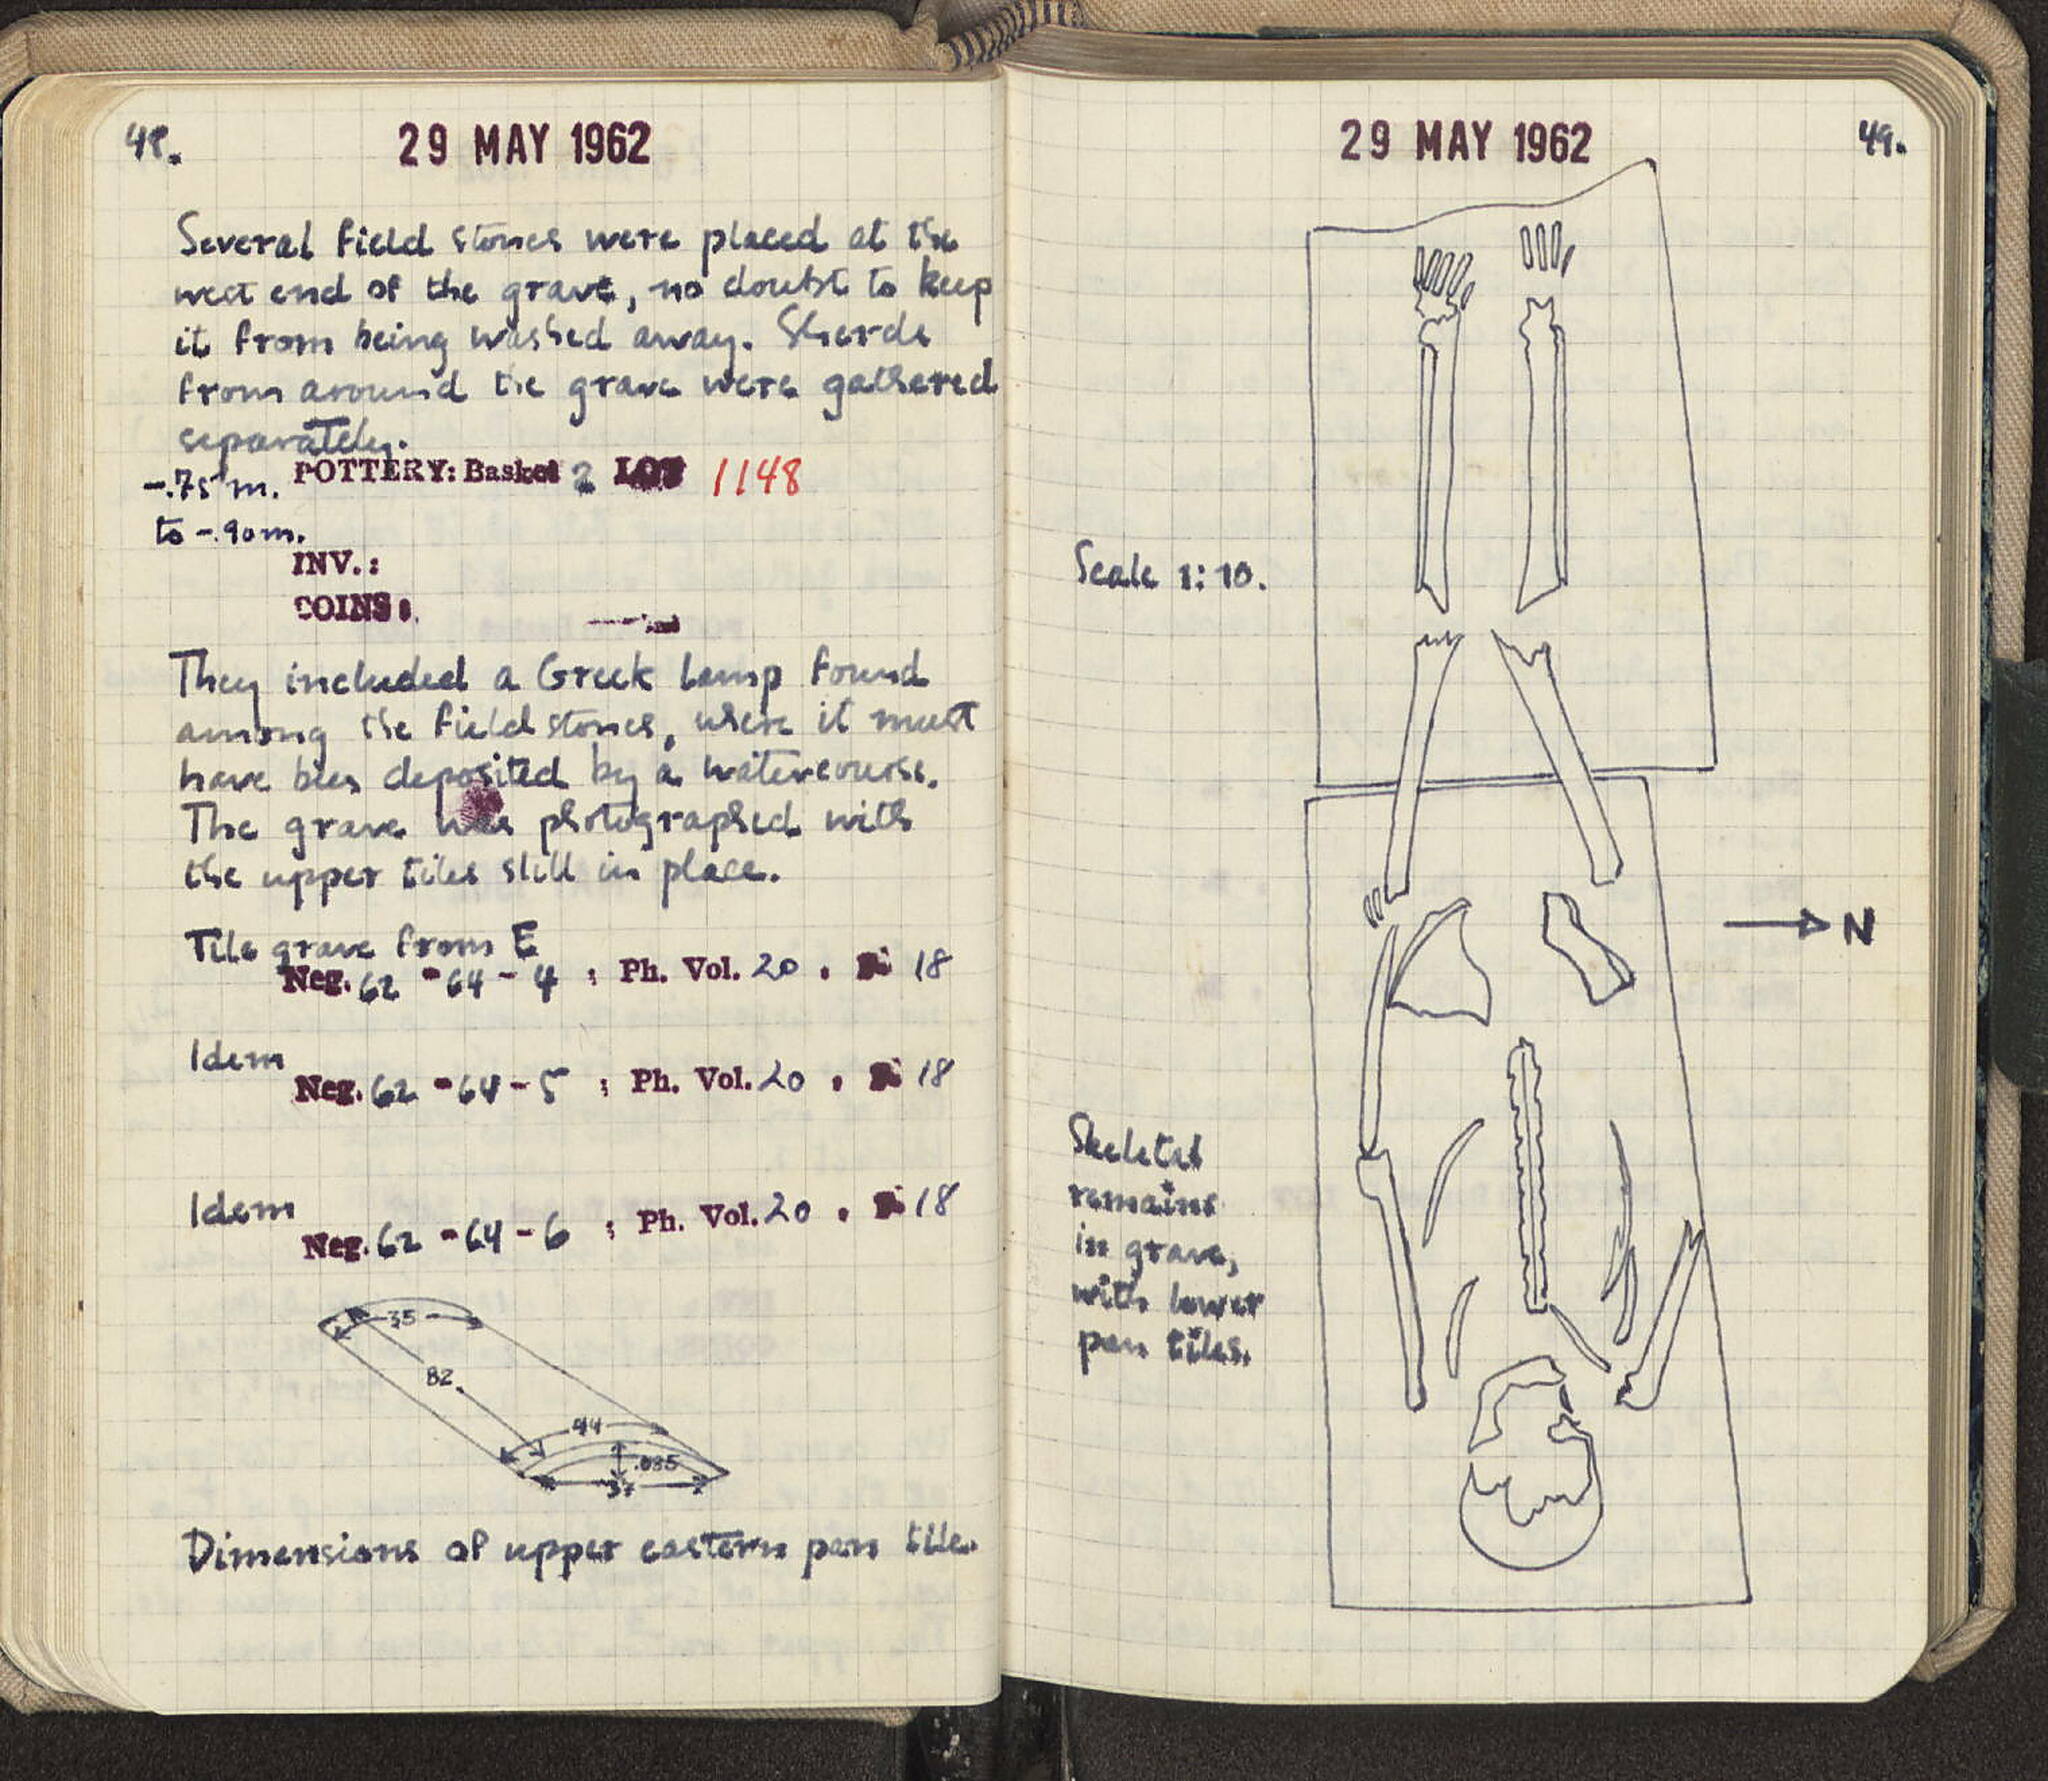 48.
29 MAY 1962
Several field stones were placed at the
west end of the grave, no doubt to keep
it from being washed away. Sherds
from around the grave were gathered
separately.
-.75 m. POTTERY: Basket 2 LOT 1148
to -.90m.
INV.:
COINS:
They included a Greek lamp found
among the field stones, where it must
have been deposited by a watercourse.
The grave was photographed with
the upper tiles still in place.
Tile grave from E
Neg. 62 - 64 - 4 ; Ph. Vol. 20 . 18
Idem
Neg. 62 - 64 - 5 ; Ph. Vol. 20 . 18
Idem
Neg. 62 - 64 - 6 ; Ph. Vol. 20 . 18
.35
.82
.44
.085
Dimensions of upper eastern pan tile.
29 MAY 1962
49.
Scale 1:10.
N
Skeletal
remains
in grave,
with lower
pan tiles.